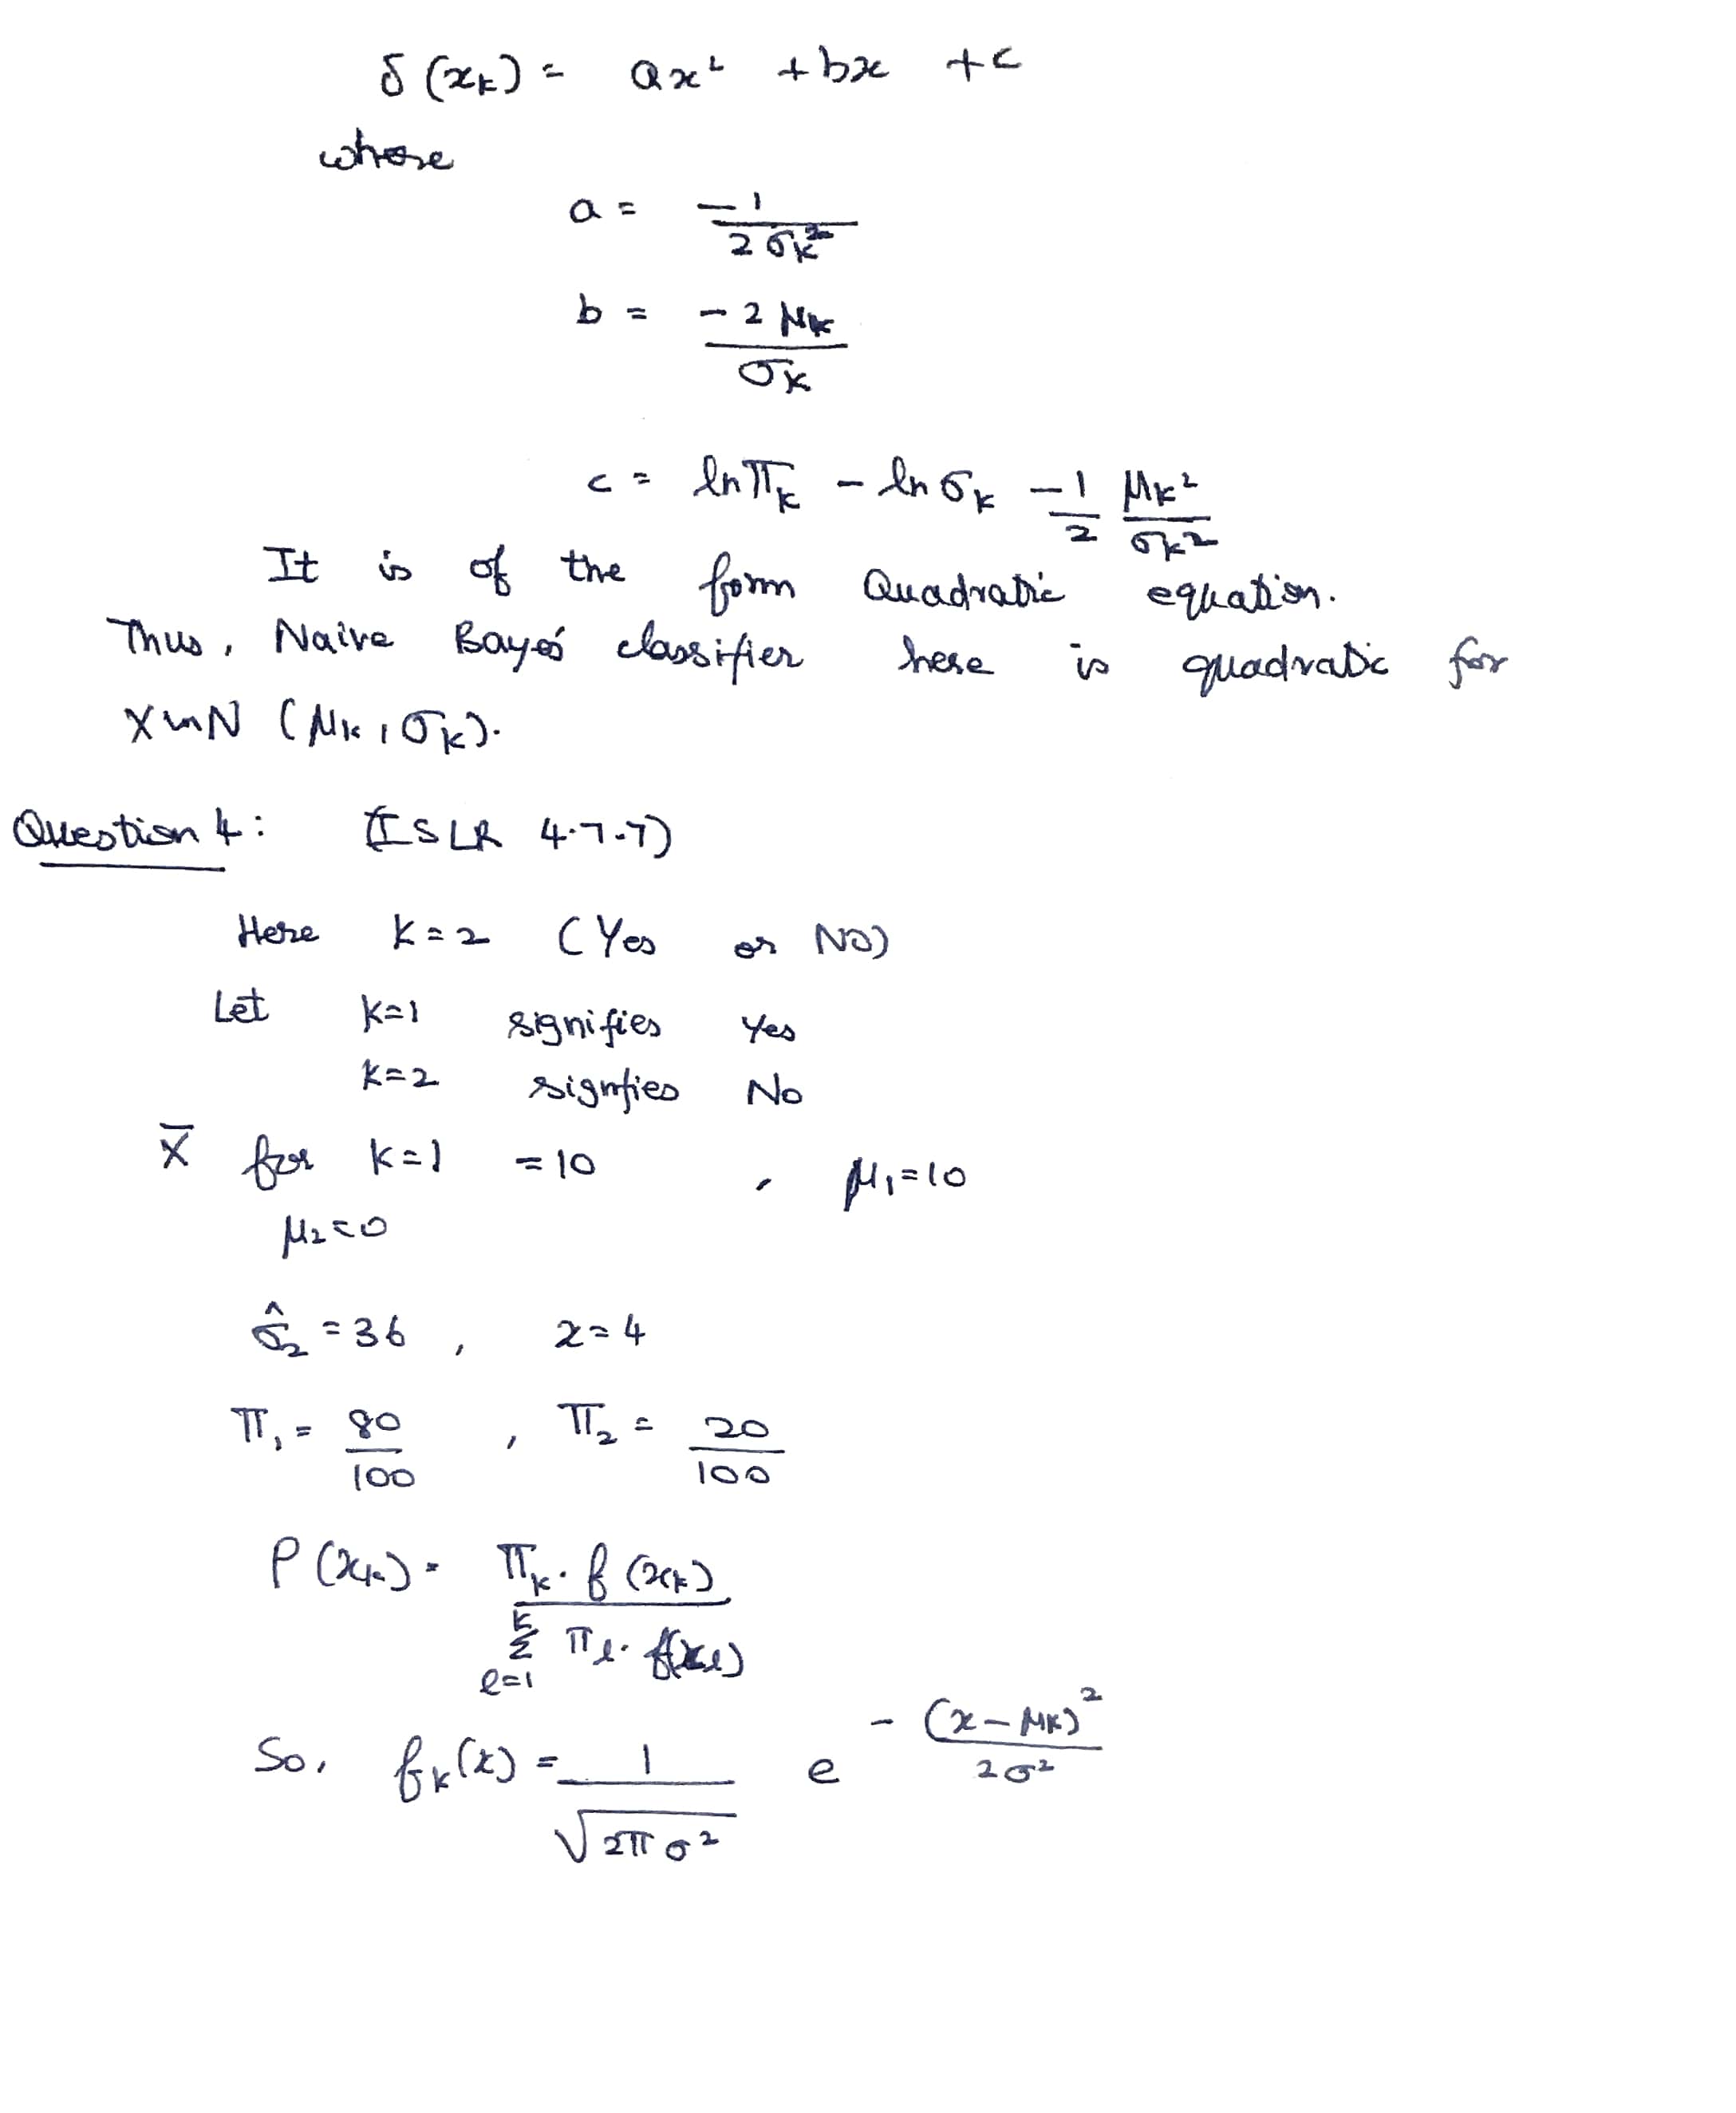 δ (x_k) = ax² + bx + c
where
a = -1 / 2σ_k²
b = -2 μ_k / σ_k
c = ln π_k - ln σ_k - 1/2 μ_k² / σ_k²
It is of the form Quadratic equation.
Thus, Naive Bayes' classifier here is quadratic for
X ~ N (μ_k, σ_k).
Question 4: (ISLR 4.7.7)
Here k=2 (Yes or NO)
Let k=1 signifies Yes
k=2 signfies No
X̄ for k=1 = 10 , μ₁=10
μ₂=0
σ̂₂ = 36 , x=4
π₁ = 80/100 , π₂ = 20/100
P(x_k) = π_k . f(x_k) / Σ_{l=1}^{k} π_l . f(x_l)
So, f_k(x) = 1 / √(2πσ²) e^{-(x-μ_k)² / 2σ²}